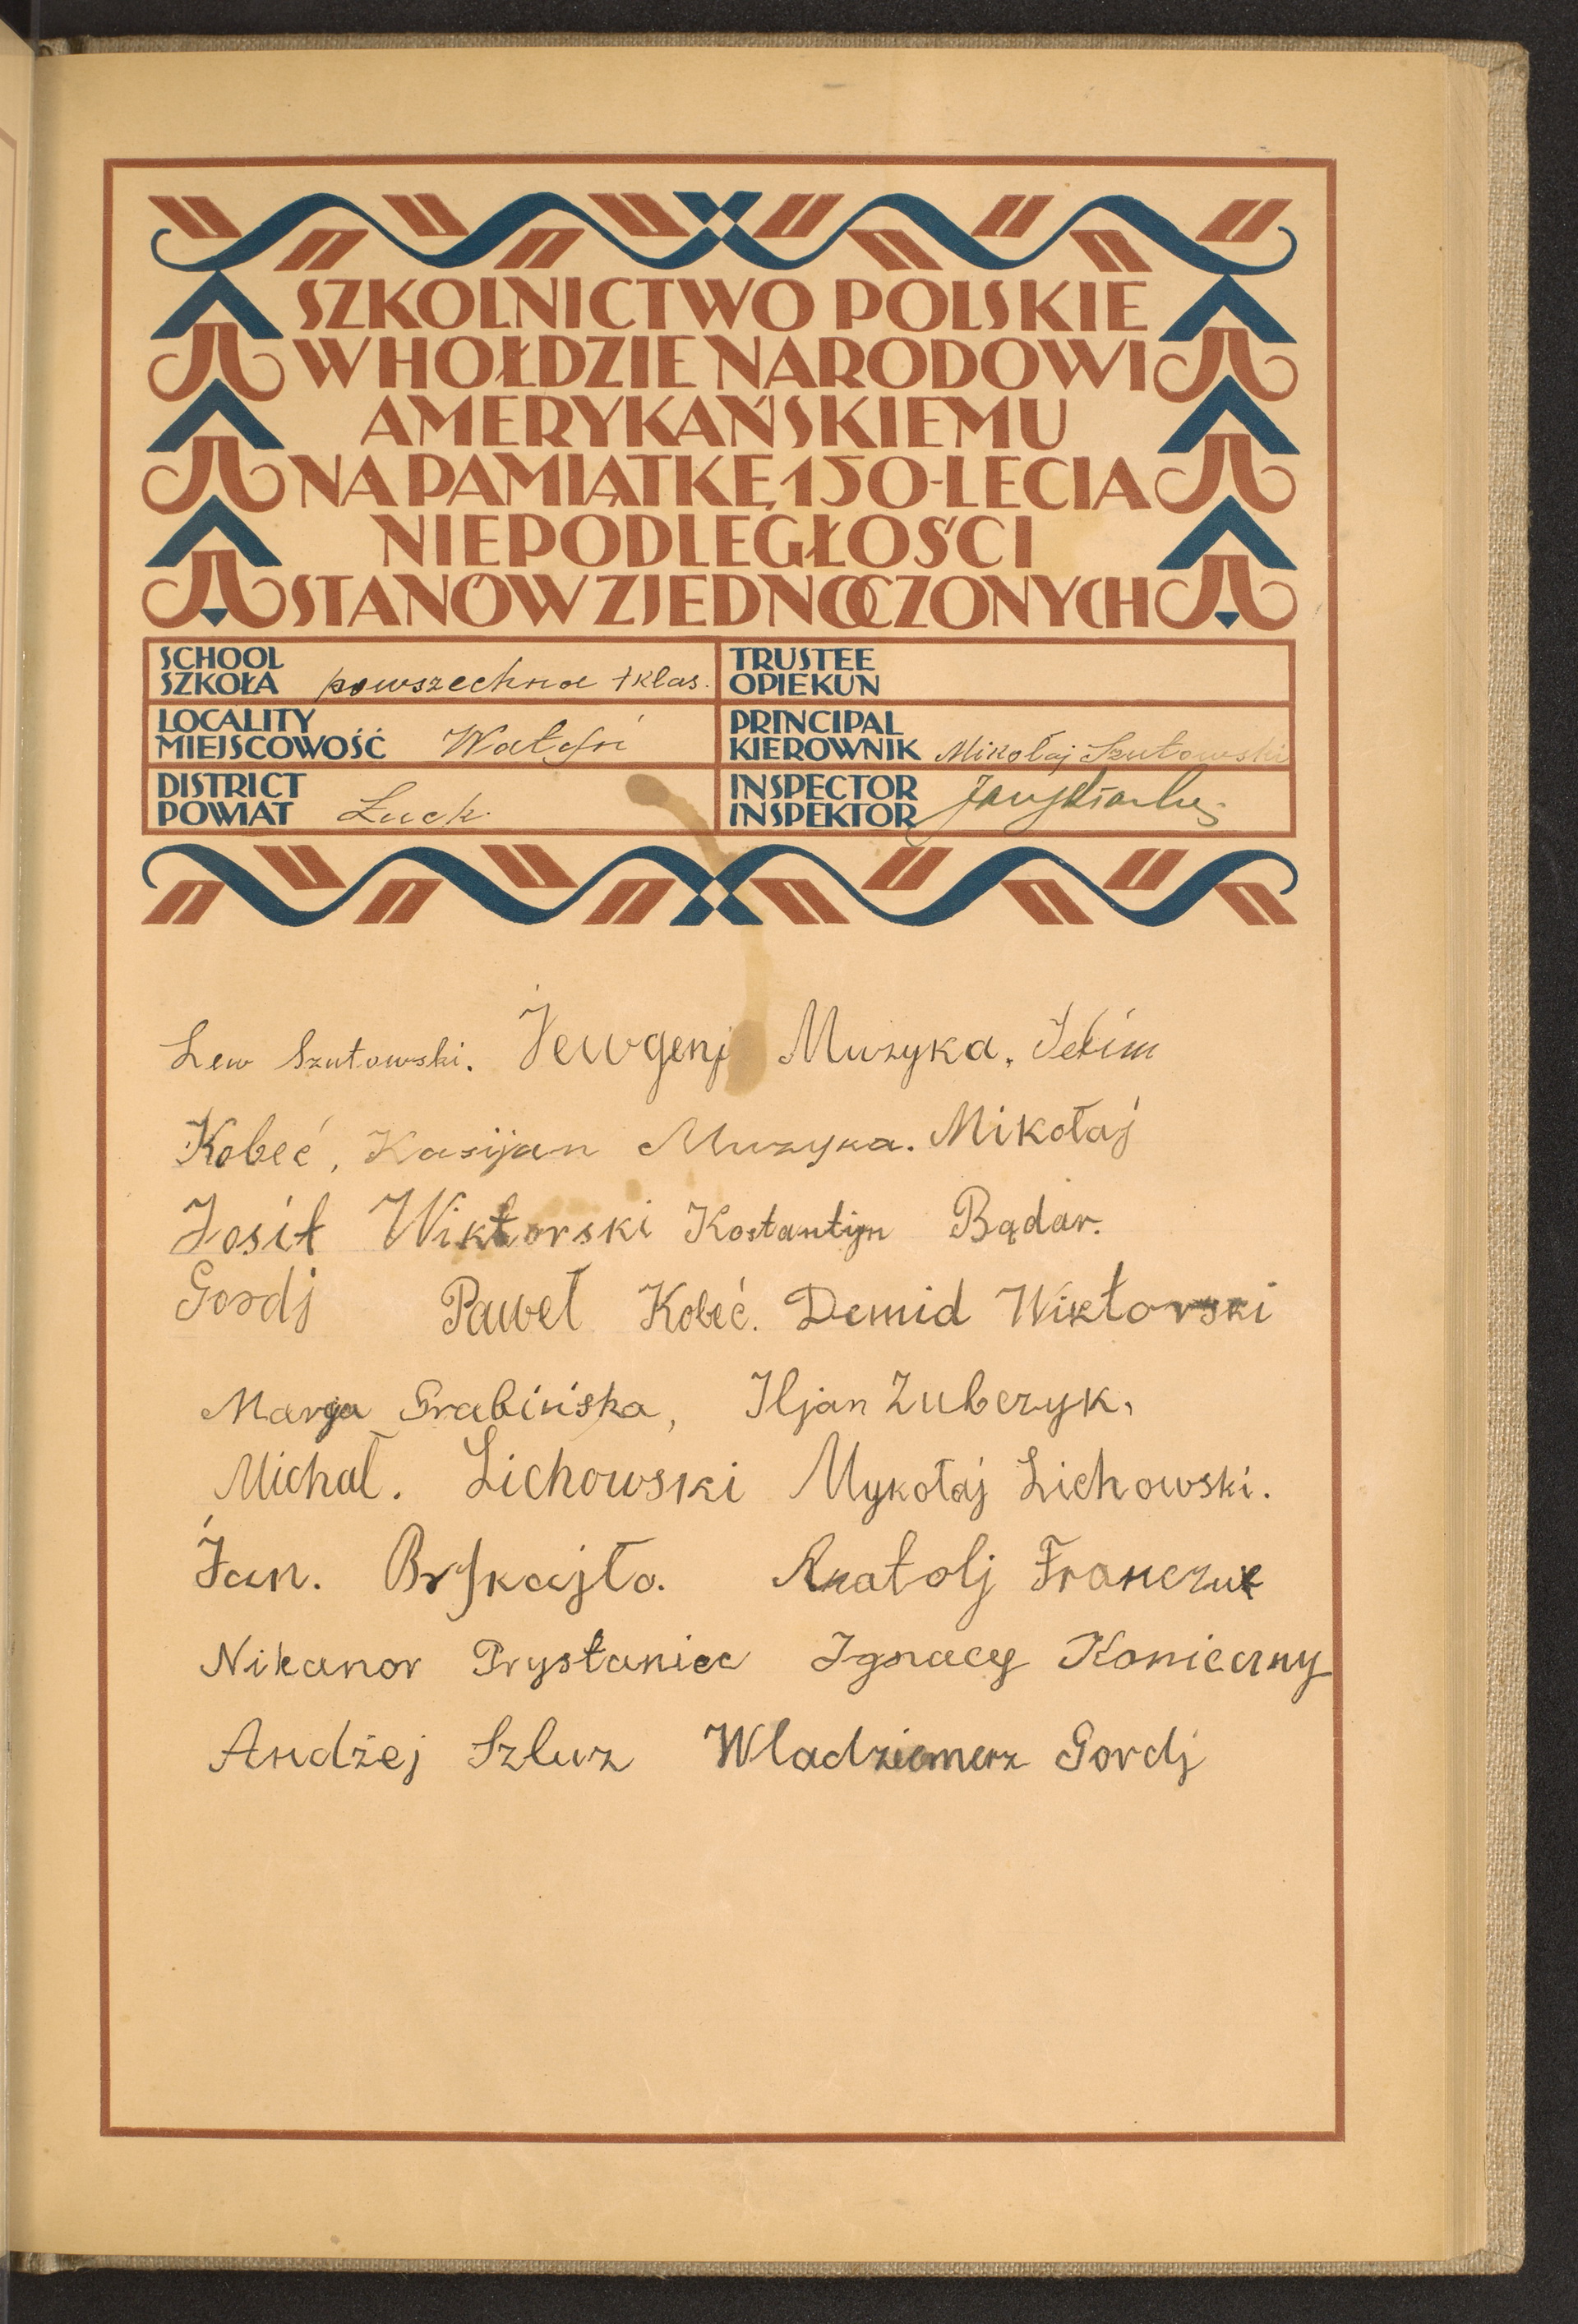 SZKOLNICTWO POLSKIE
W HOŁDZIE NARODOWI
AMERYKAŃSKIEMU
NA PAMIĄTKĘ 150-LECIA
NIEPODLEGŁOŚCI
STANÓW ZJEDNOCZONYCH
SCHOOL
SZKOŁA powszechna 1 klas.
TRUSTEE
OPIEKUN
LOCALITY
MIEJSCOWOŚĆ
PRINCIPAL
KIEROWNIK Mikołaj Szutowski
DISTRICT
POWIAT Łuck.
INSPECTOR
INSPEKTOR
Lew Szutowski. Jewgenj Muzyka. Jefim
Kobeć, Kasijan Muzyka. Mikołaj
Josif Wiktorski Kostantyn Bądar.
Gordj Paweł Kobeć. Demid Wiktorski
Marya Grabińska, Iljan Zubczyk.
Michał. Lichowski Mykołaj Lichowski.
Jan. Anatolj Franczuk
Nikanor Prystaniec Ignacy Konieczny
Andżej Szluz Wladziemerz Gordj